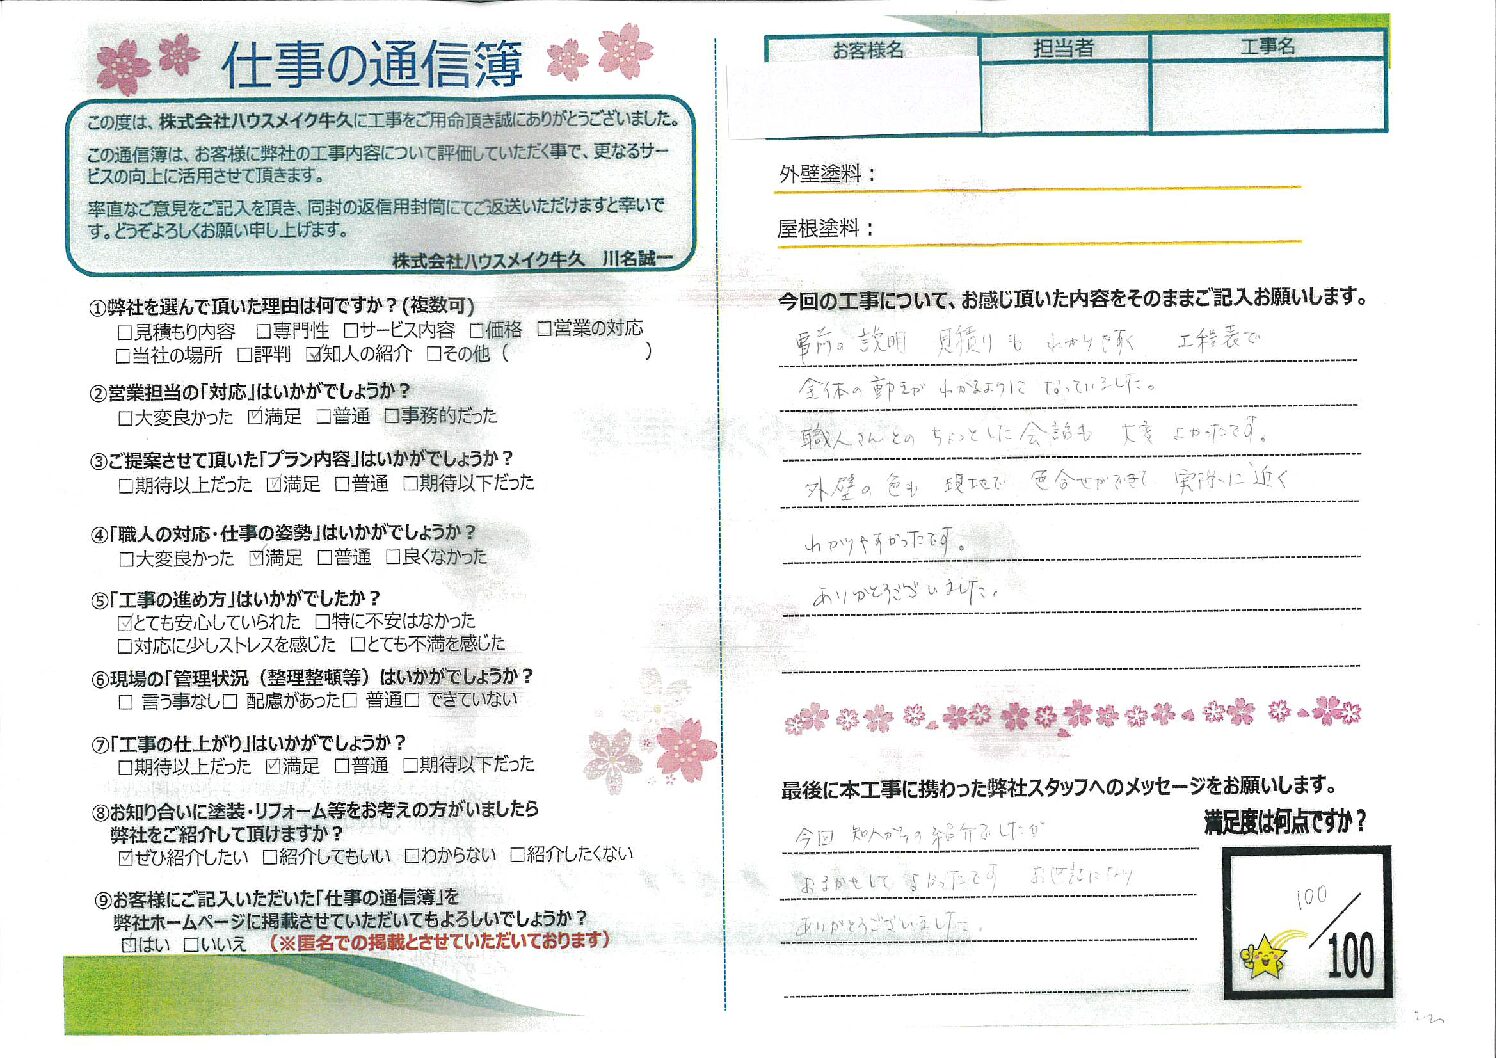 仕事の通信簿
この度は、株式会社ハウスメイク牛久に工事をご用命頂き誠にありがとうございました。
この通信簿は、お客様に弊社の工事内容について評価していただく事で、更なるサー
ビスの向上に活用させて頂きます。
率直なご意見をご記入を頂き、同封の返信用封筒にてご返送いただけますと幸いで
す。どうぞよろしくお願い申し上げます。
株式会社ハウスメイク牛久 川名誠一
①弊社を選んで頂いた理由は何ですか？(複数可)
□見積もり内容 □専門性 □サービス内容 □価格 □営業の対応
□当社の場所 □評判 ☑知人の紹介 □その他（ ）
②営業担当の｢対応｣はいかがでしょうか？
□大変良かった ☑満足 □普通 □事務的だった
③ご提案させて頂いた｢プラン内容｣はいかがでしょうか？
□期待以上だった ☑満足 □普通 □期待以下だった
④｢職人の対応･仕事の姿勢｣はいかがでしょうか？
□大変良かった ☑満足 □普通 □良くなかった
⑤｢工事の進め方｣はいかがでしたか？
☑とても安心していられた □特に不安はなかった
□対応に少しストレスを感じた □とても不満を感じた
⑥現場の｢管理状況（整理整頓等）はいかがでしょうか？
□ 言う事なし□ 配慮があった□ 普通□ できていない
⑦｢工事の仕上がり｣はいかがでしょうか？
□期待以上だった ☑満足 □普通 □期待以下だった
⑧お知り合いに塗装･リフォーム等をお考えの方がいましたら
弊社をご紹介して頂けますか？
☑ぜひ紹介したい □紹介してもいい □わからない □紹介したくない
⑨お客様にご記入いただいた｢仕事の通信簿｣を
弊社ホームページに掲載させていただいてもよろしいでしょうか？
☑はい □いいえ （※匿名での掲載とさせていただいております）
お客様名 担当者 工事名
外壁塗料：
屋根塗料：
今回の工事について、お感じ頂いた内容をそのままご記入お願いします。
事前の説明 見積りも わかりやすく 工程表で
全体の動きが わかるように なっていました。
職人さんとの ちょっとした会話も 大変 よかったです。
外壁の色も 現地で 色合せができて 実際に近く
わかりやすかったです。
ありがとうございました。
最後に本工事に携わった弊社スタッフへのメッセージをお願いします。
満足度は何点ですか？
今回 知人からの紹介でしたが
おまかせして よかったです お世話になり
ありがとうございました。
100
/100